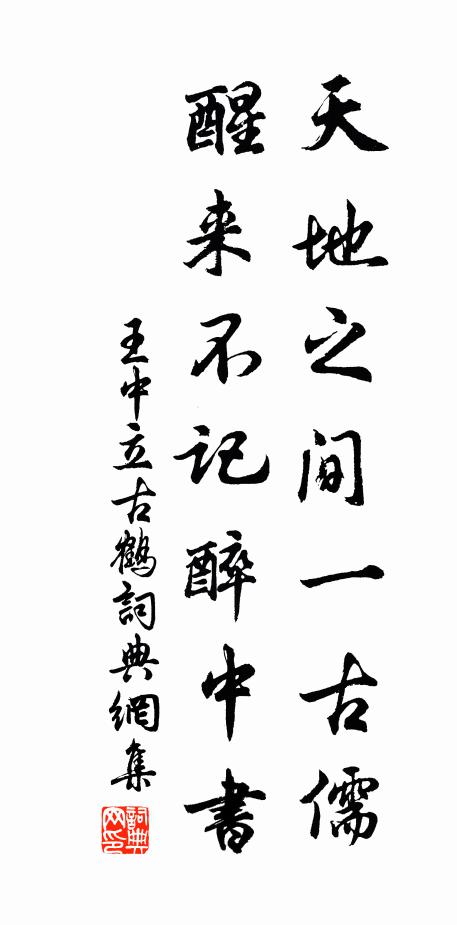 天地之间一古儒
醒来不记醉中書
王中立古鶴詞典網集
詞典网印